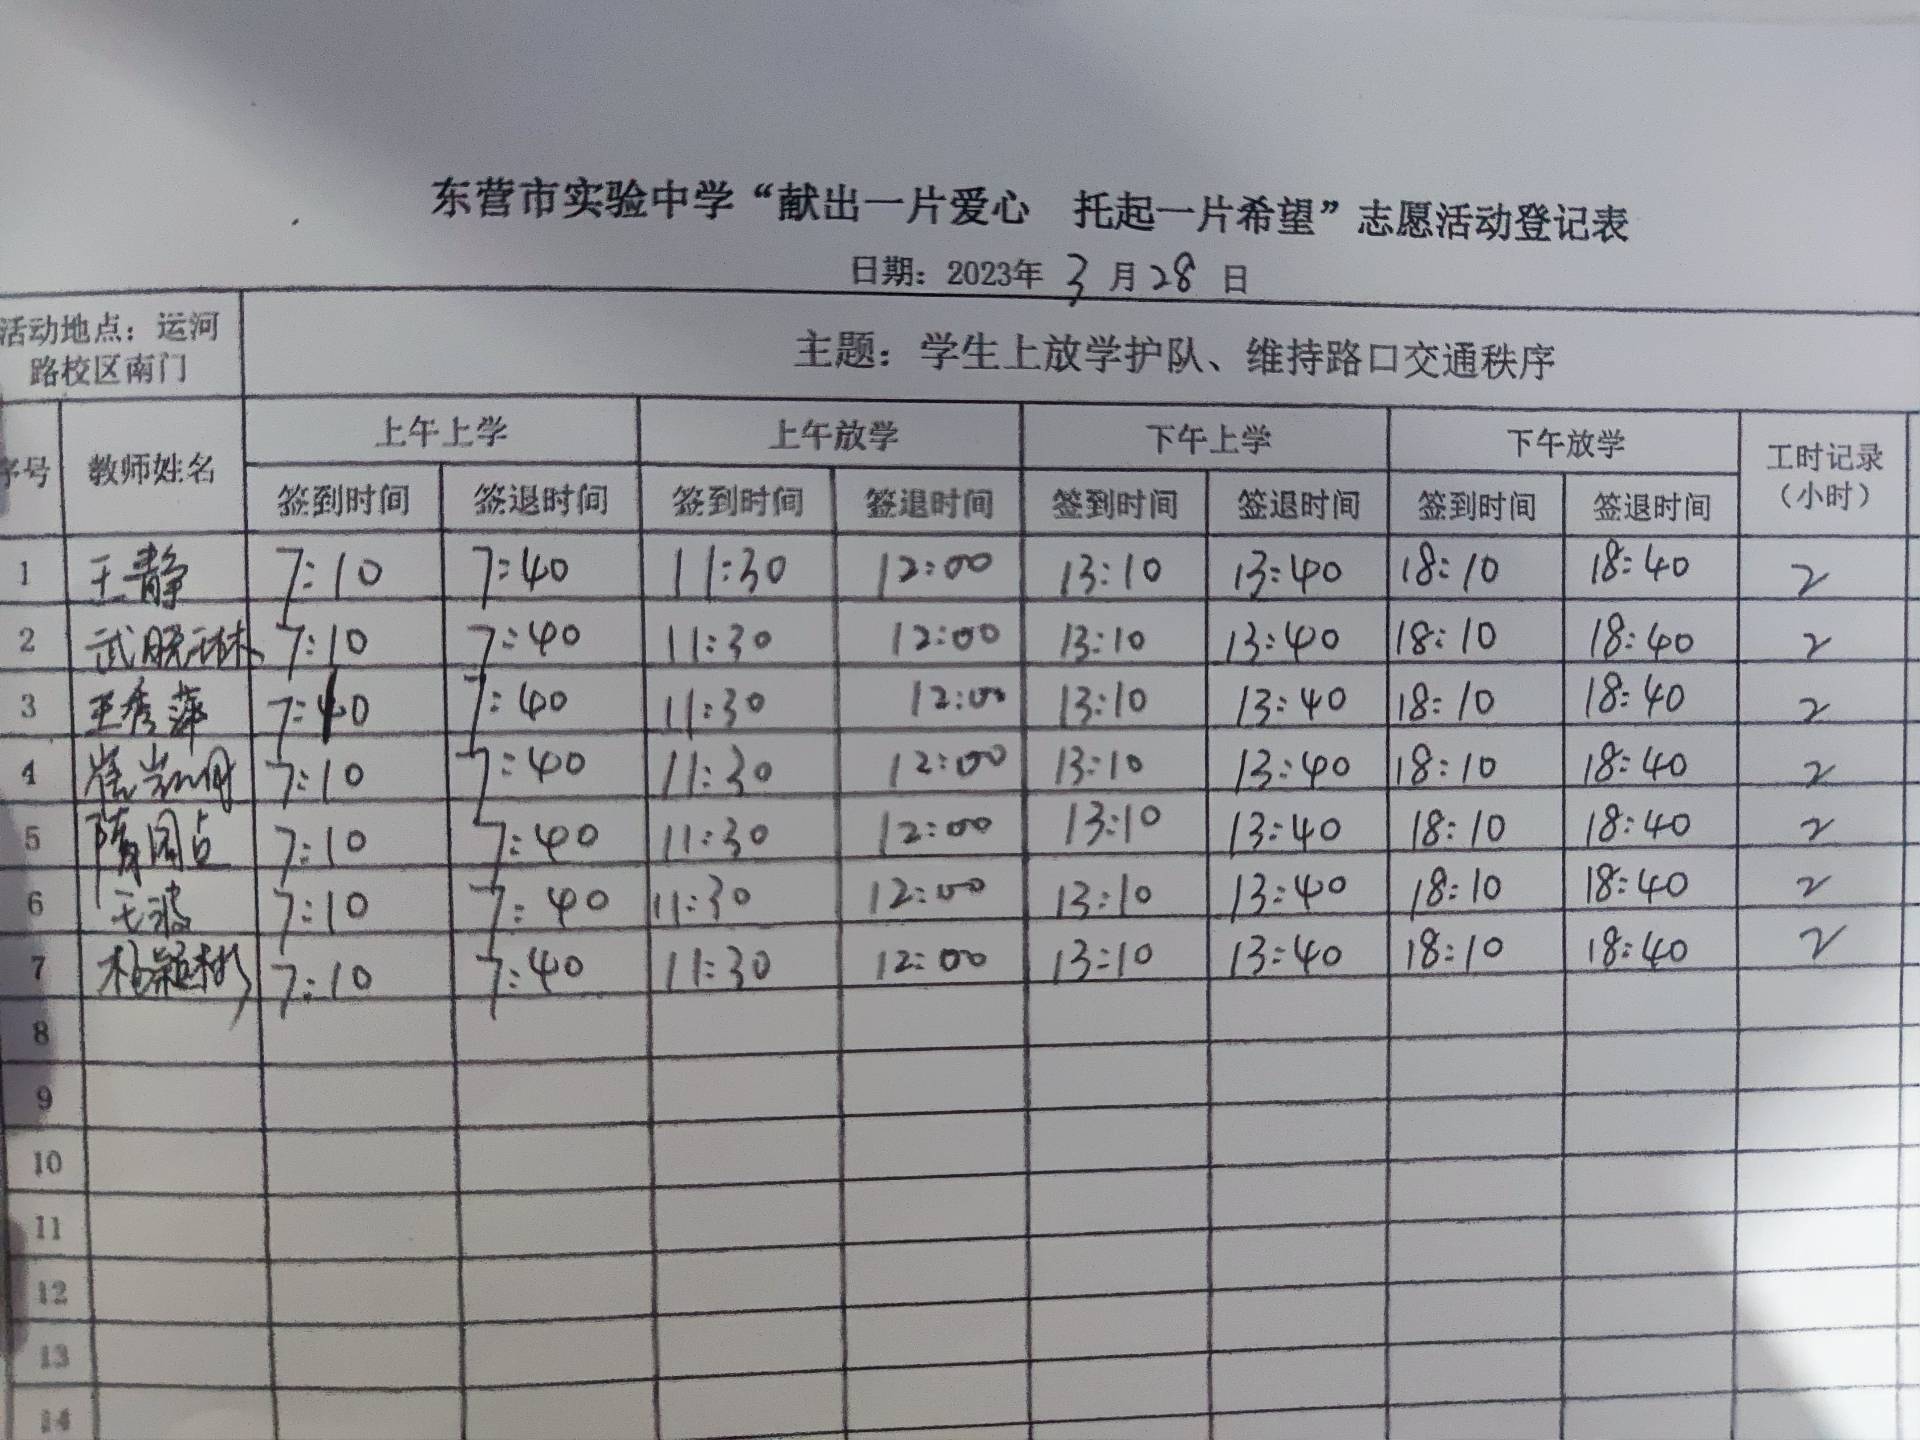 东营市实验中学“献出一片爱心 托起一片希望”志愿活动登记表
日期：2023年 3 月 28 日
活动地点：运河路校区南门 主题：学生上放学护队、维持路口交通秩序
序号 教师姓名 上午上学 上午放学 下午上学 下午放学 工时记录（小时）
签到时间 签退时间 签到时间 签退时间 签到时间 签退时间 签到时间 签退时间
1 王静 7:10 7:40 11:30 12:00 13:10 13:40 18:10 18:40 2
2 武晓琳 7:10 7:40 11:30 12:00 13:10 13:40 18:10 18:40 2
3 王秀萍 7:10 7:40 11:30 12:00 13:10 13:40 18:10 18:40 2
4 7:10 7:40 11:30 12:00 13:10 13:40 18:10 18:40 2
5 7:10 7:40 11:30 12:00 13:10 13:40 18:10 18:40 2
6 王波 7:10 7:40 11:30 12:00 13:10 13:40 18:10 18:40 2
7 7:10 7:40 11:30 12:00 13:10 13:40 18:10 18:40 2
8
9
10
11
12
13
14